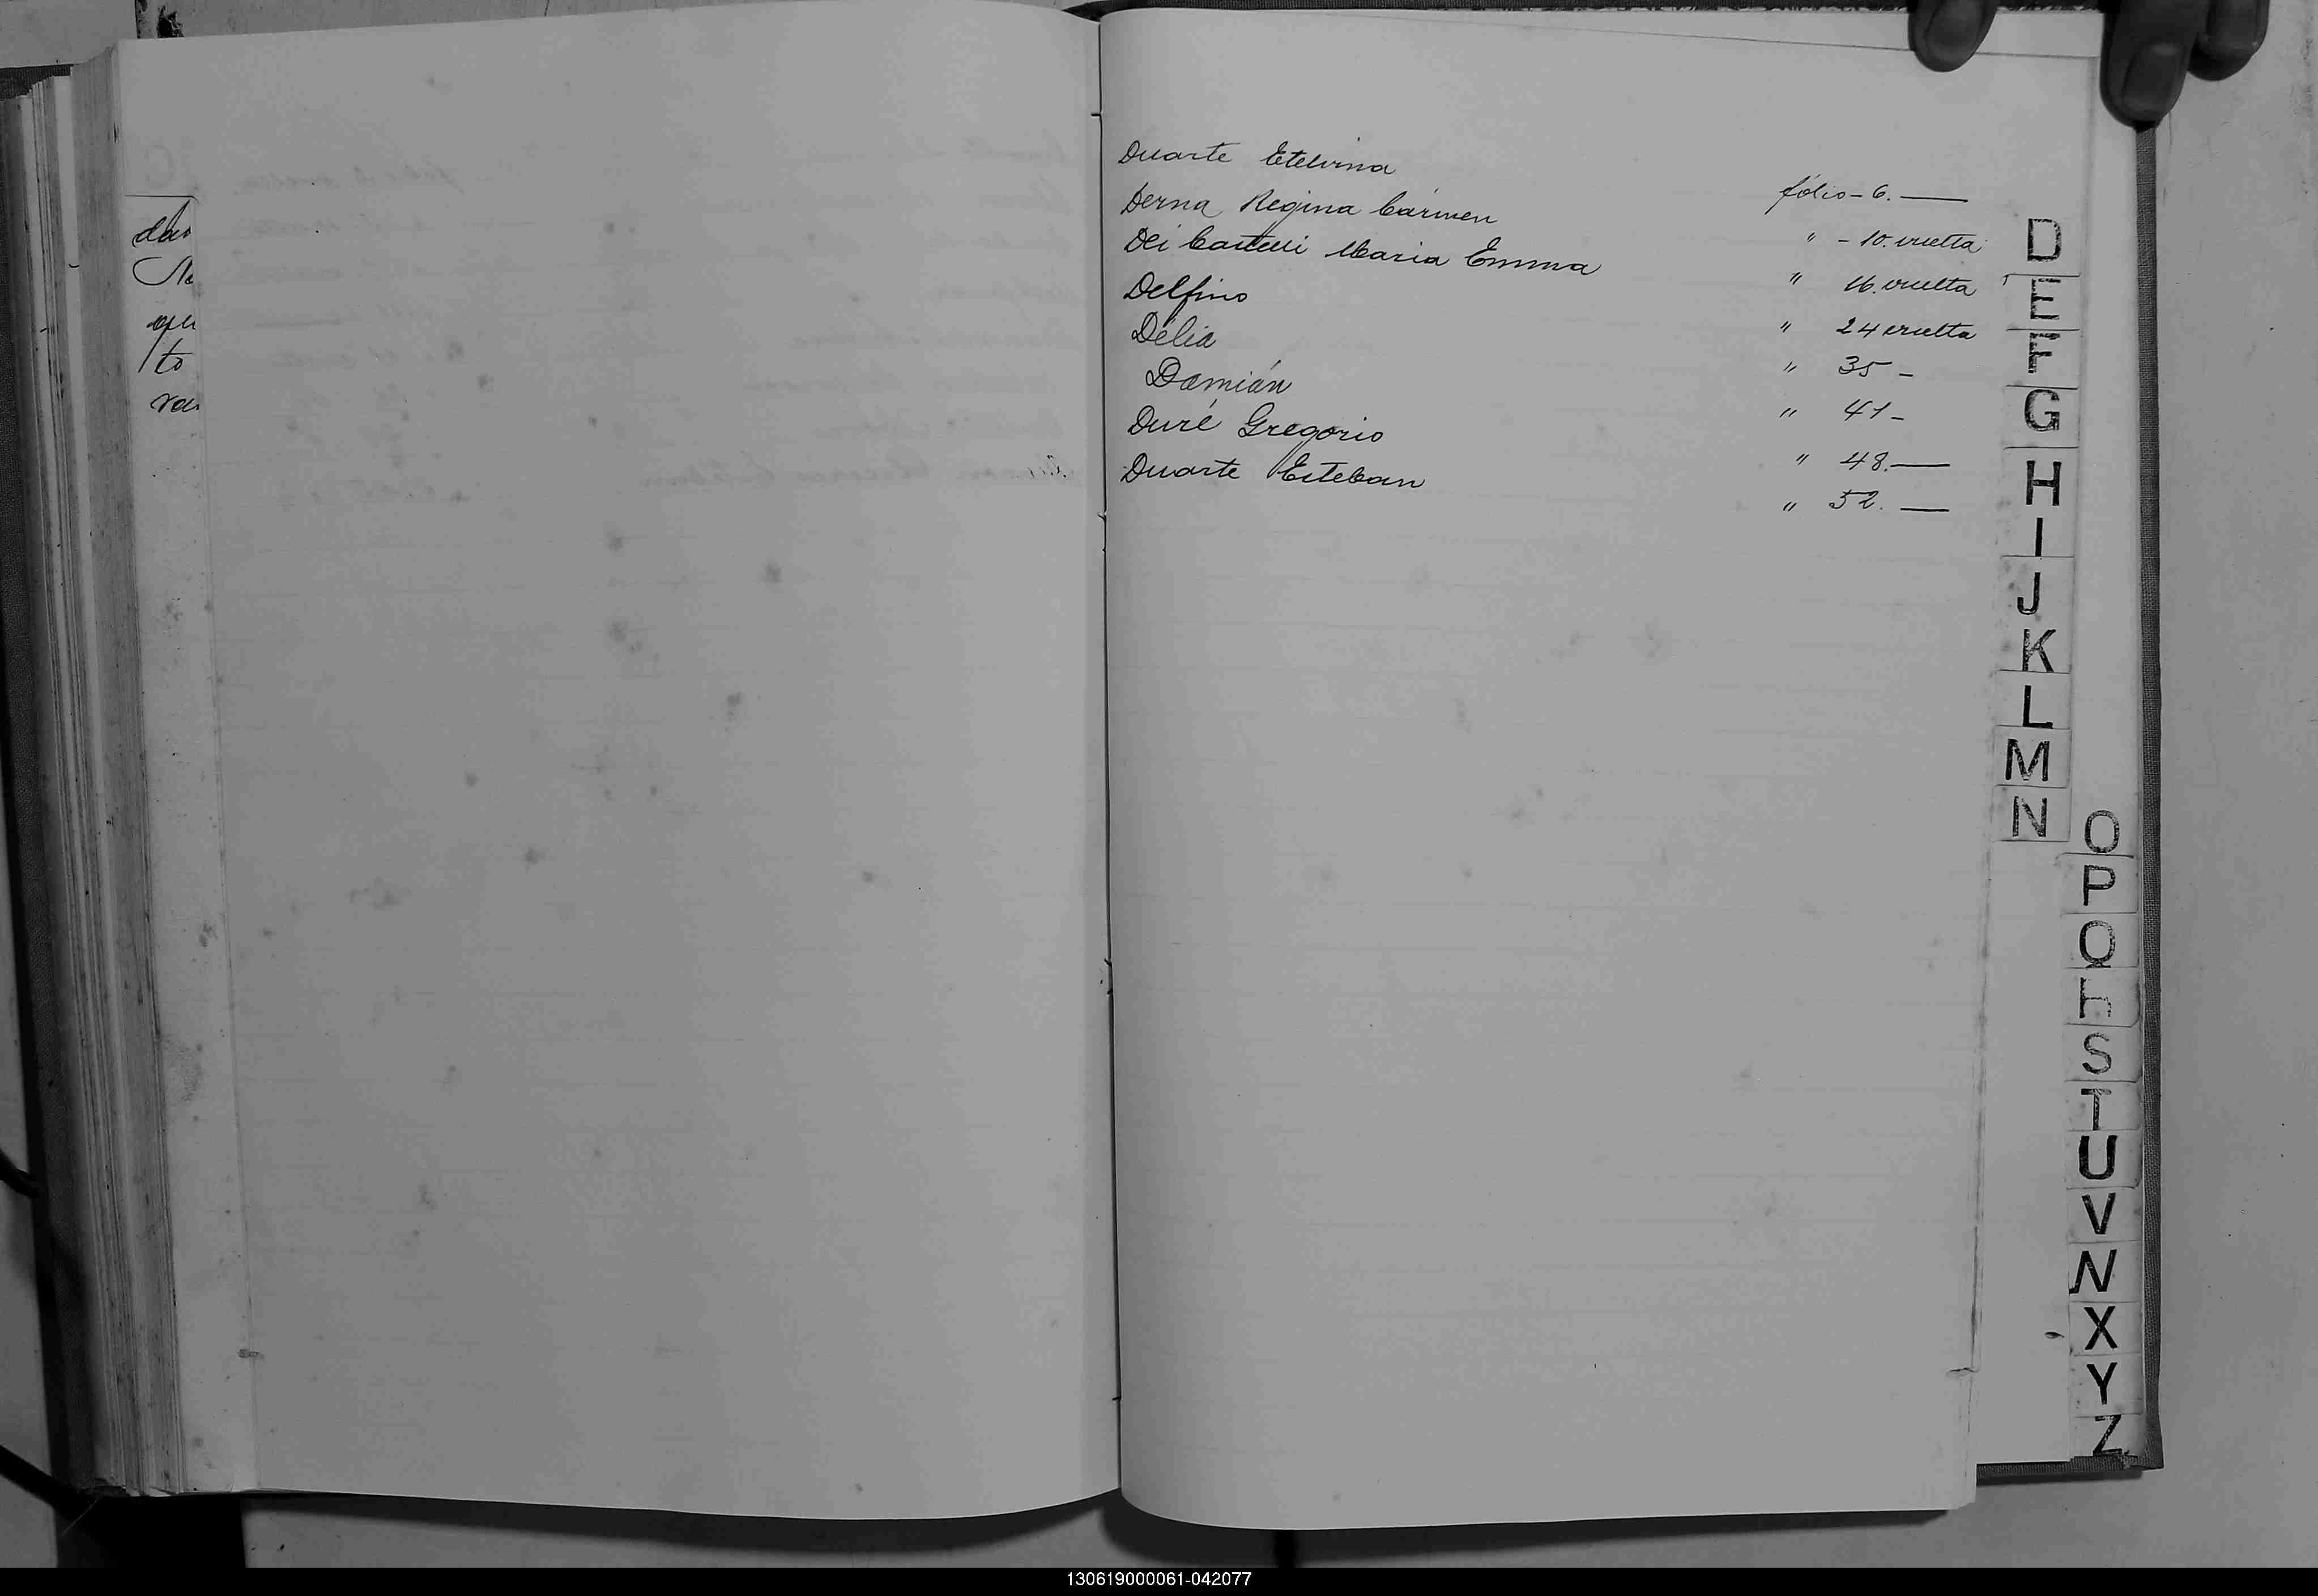 Duarte Etelvina fólio - 6. —
Derna Regina Cármen " - 10. vuelta
Dei Castelli Maria Emma " 16. vuelta
Delfino " 24 vuelta
Délia " 35 -
Damián " 41 -
Duré Gregorio " 48. —
Duarte Esteban " 52. —
to
D
E
F
G
H
I
J
K
L
M
N
O
P
Q
S
T
U
V
X
Y
Z
130619000061-042077